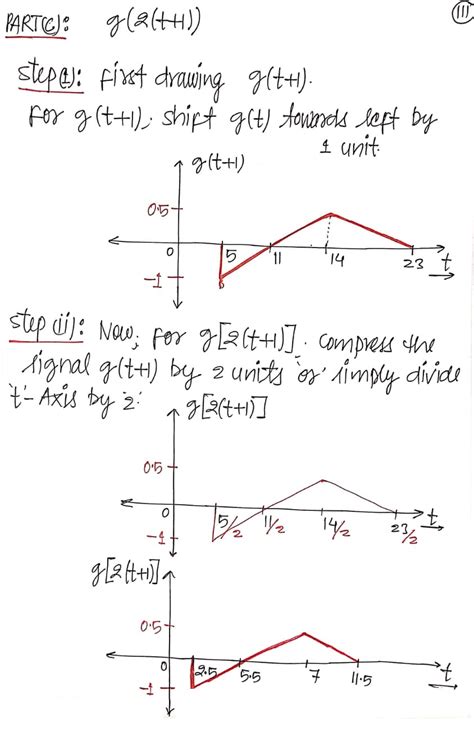 PART(C): g(2(t+1))
(III)
Step(i): First drawing g(t+1).
For g(t+1), shift g(t) towards left by
1 unit.
g(t+1)
0.5
0 5 11 14 23 t
-1
Step (ii): Now, for g[2(t+1)]. compress the
signal g(t+1) by 2 units 'or' simply divide
't'-Axis by 2.
g[2(t+1)]
0.5
0 5/2 11/2 14/2 23/2 t
-1
g[2(t+1)]
0.5
0 2.5 5.5 7 11.5 t
-1